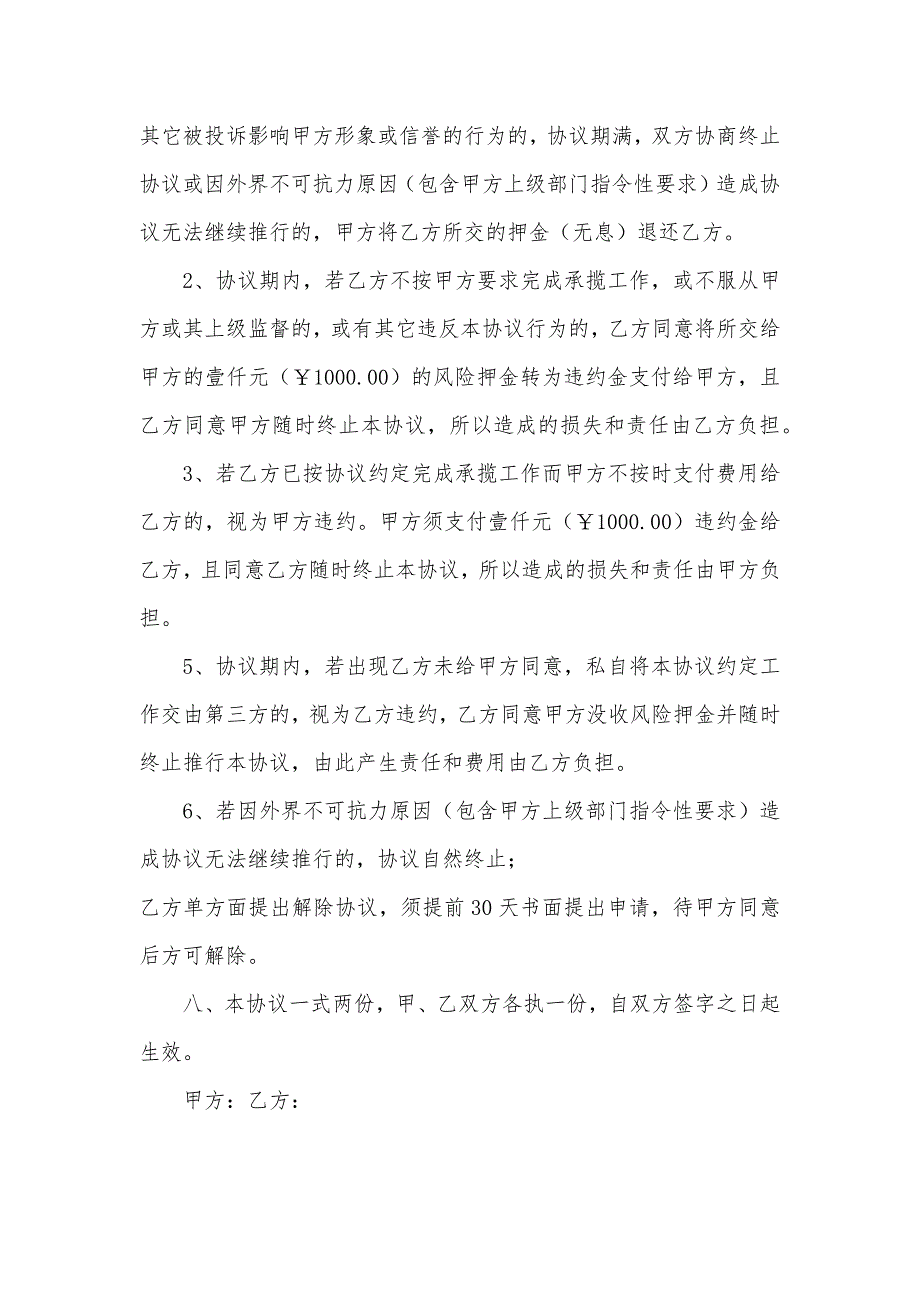 其它被投诉影响甲方形象或信誉的行为的，协议期满，双方协商终止
协议或因外界不可抗力原因（包含甲方上级部门指令性要求）造成协
议无法继续推行的，甲方将乙方所交的押金（无息）退还乙方。
2、协议期内，若乙方不按甲方要求完成承揽工作，或不服从甲
方或其上级监督的，或有其它违反本协议行为的，乙方同意将所交给
甲方的壹仟元（￥1000.00）的风险押金转为违约金支付给甲方，且
乙方同意甲方随时终止本协议，所以造成的损失和责任由乙方负担。
3、若乙方已按协议约定完成承揽工作而甲方不按时支付费用给
乙方的，视为甲方违约。甲方须支付壹仟元（￥1000.00）违约金给
乙方，且同意乙方随时终止本协议，所以造成的损失和责任由甲方负
担。
5、协议期内，若出现乙方未给甲方同意，私自将本协议约定工
作交由第三方的，视为乙方违约，乙方同意甲方没收风险押金并随时
终止推行本协议，由此产生责任和费用由乙方负担。
6、若因外界不可抗力原因（包含甲方上级部门指令性要求）造
成协议无法继续推行的，协议自然终止；
乙方单方面提出解除协议，须提前 30 天书面提出申请，待甲方同意
后方可解除。
八、本协议一式两份，甲、乙双方各执一份，自双方签字之日起
生效。
甲方：乙方：